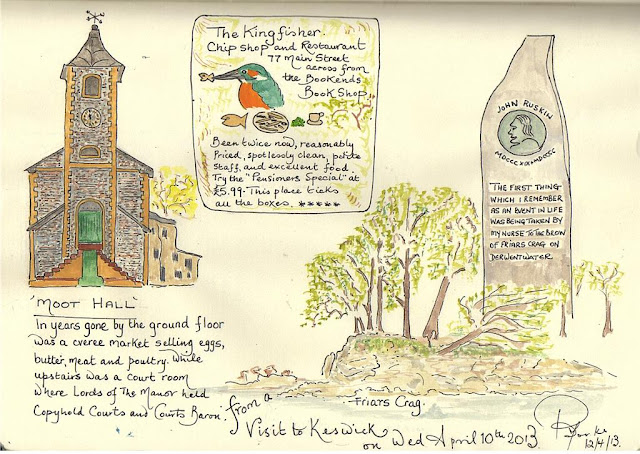 The Kingfisher.
Chip shop and Restaurant
77 Main Street
across from
the Bookends
Book Shop
Been twice now, reasonably
Priced, spotlessly clean, polite
Staff, and excellent food.
Try the "Pensioners Special" at
£5.99. This place ticks
all the boxes. *****
JOHN RUSKIN
THE FIRST THING
WHICH I REMEMBER
AS AN EVENT IN LIFE
WAS BEING TAKEN BY
MY NURSE TO THE BROW
OF FRIARS CRAG ON
DERWENTWATER
'MOOT HALL'
In years gone by the ground floor
was a market selling eggs,
butter, meat and poultry. While
upstairs was a court room
where Lords of The Manor held
Copyhold Courts and Courts Baron.
Friars Crag.
from a
Visit to Keswick
on Wed April 10th 2013
12/4/13.